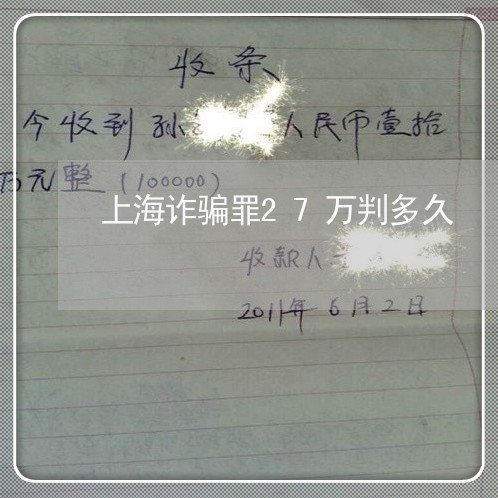 收条
今收到孙人民币壹拾
万元整（100000）
上海诈骗罪27万判多久
收款人
2011年6月2日